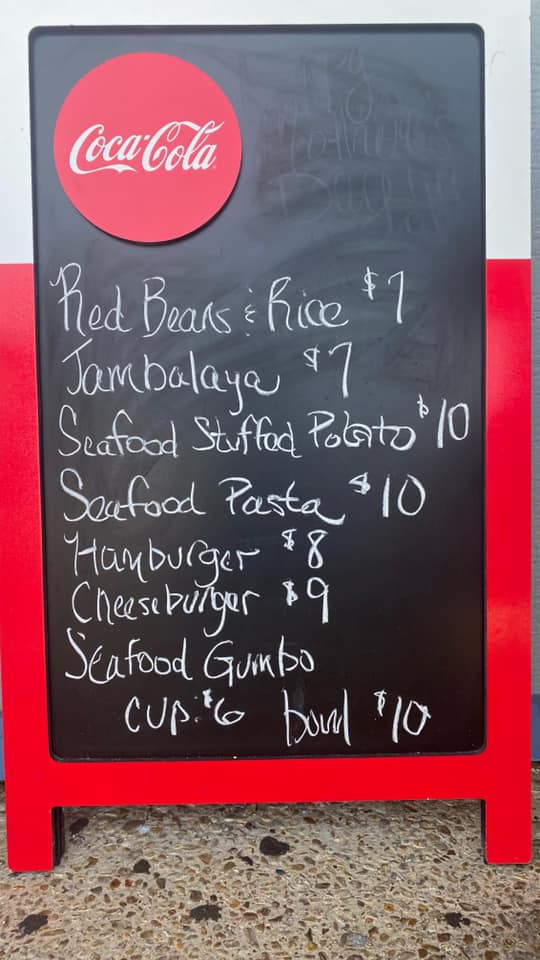 Coca-Cola
Mother's
Day!!
Red Beans & Rice $7
Jambalaya $7
Seafood Stuffed Potato $10
Seafood Pasta $10
Hamburger $8
Cheeseburger $9
Seafood Gumbo
CUP $6 bowl $10